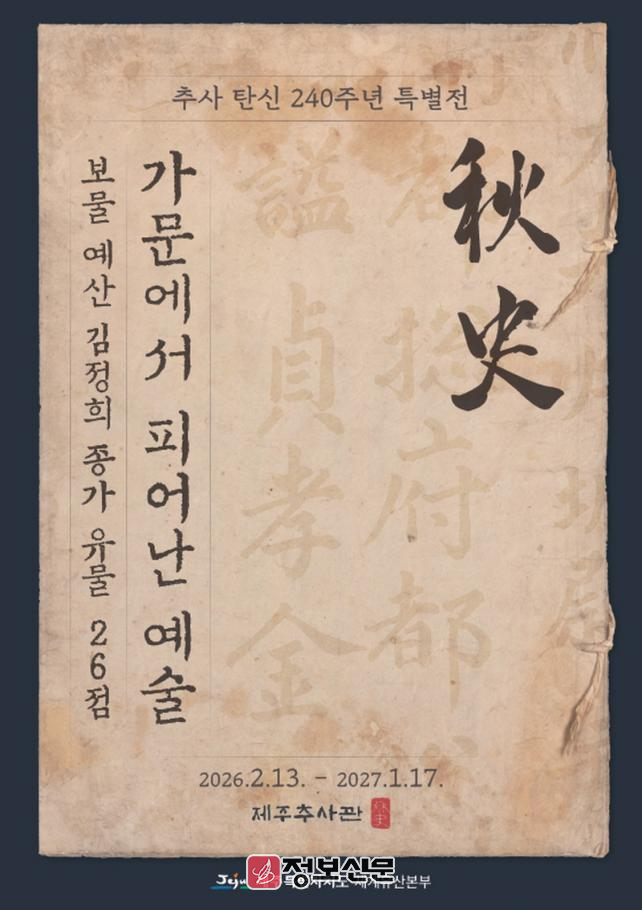 추사 탄신 240주년 특별전
秋史
가문에서 피어난 예술
보물 예산 김정희 종가 유물 26점
謚 貞孝金
都摠府都
2026.2.13. - 2027.1.17.
제주추사관
秋史
정보신문
Jeju
세계유산본부